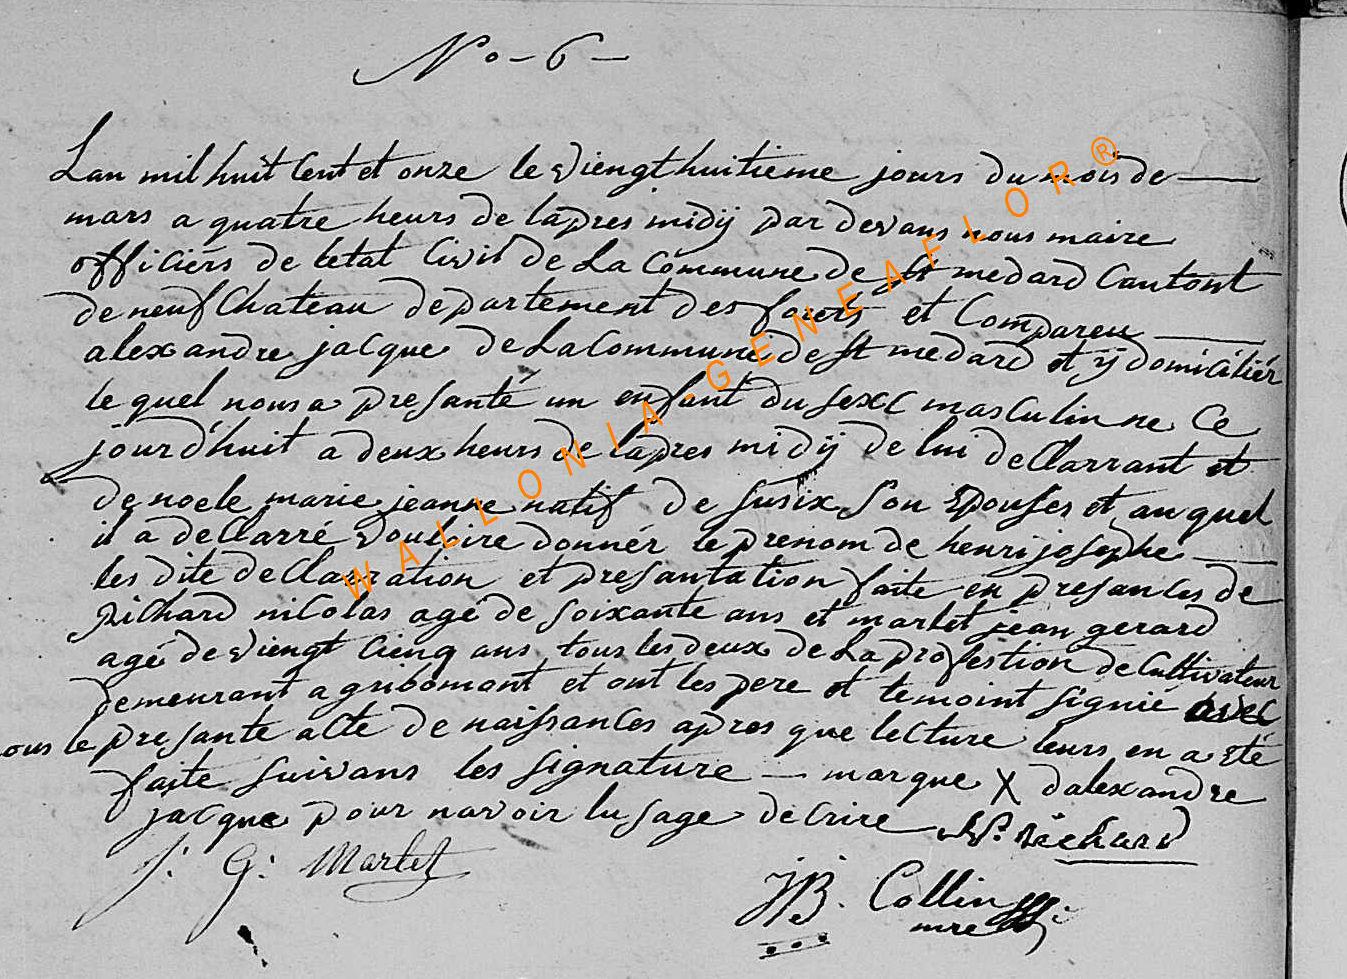 N° - 6 -
Lan mil huit Cent et onze le viengt huitieme jours du mois de
mars a quatre heurs de lapres midÿ par devans nous maire
officiers de letat Civil de La Commune de St medard Cantont
de neufChateau departement des forets et Compareu
alexandre jacque de La Commune de St medard et ÿ domiciliér
le quel nous a presanté un enfant du sexe masculin ne Ce
jourd'huit a deux heurs de lapres midÿ de lui deClarrant et
de noele marie jeanne natif de susix son Epouses et au quel
il a deClarré vouloire donnér le prenom de henri josephe
les dite deClarration et presantation faite en presances de
Richard nicolas agé de soixante ans et marlet jean gerard
agé de viengt Cienq ans tous les deux de La profestion de Cultivateur
demeurant a gribomont et ont les pere et temoint signié avec
nous le presante acte de naissances apres que lecture leurs en a Eté
faite suivans les signature - marque X dalexandre
jacque pour navoir lusage decrire N. Richard
J: G: Marlet
JB. Collin
mre
WALLONIA-GENEAFLOR®